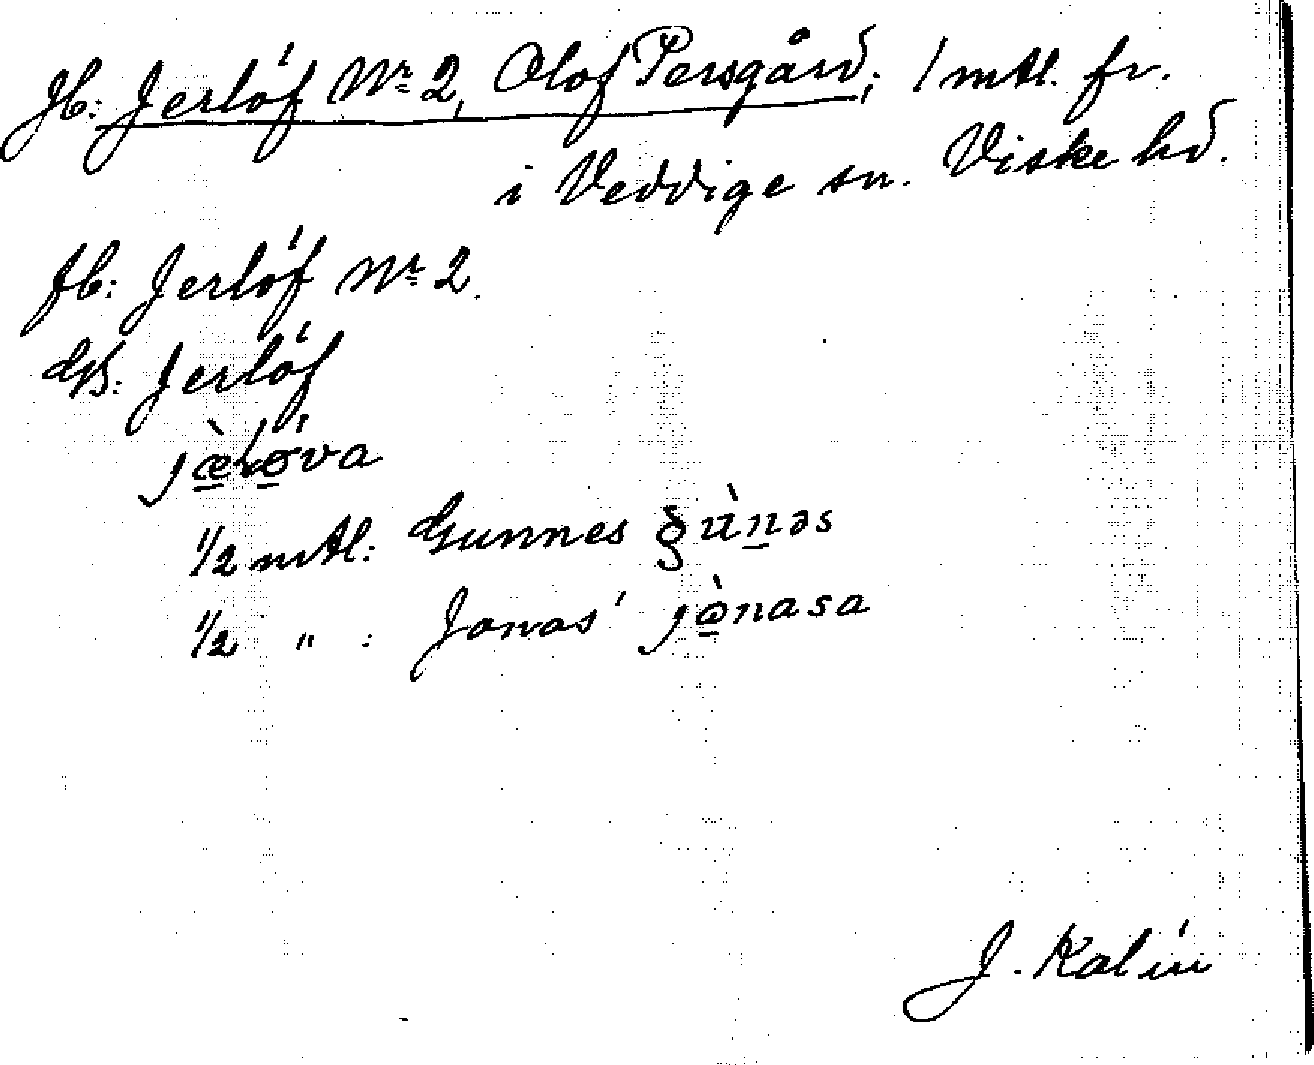 Jb: Jerlöf Nr 2, Olof Persgård; 1 mtl. fr.
i Veddige sn. Viske hd.
fb: Jerlöf Nr 2.
GB: Jerlöf
½ mtl: Gunnes
½ " : Jonas' jònasa
J. Kalén